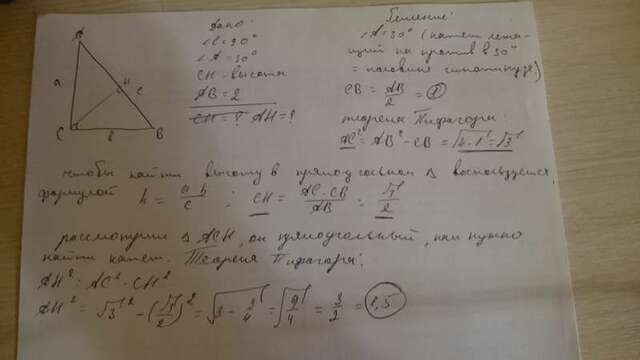 A
a
H
c
C
b
B
Дано:
∠C=90°
∠A=30°
CH - высота
AB = 2
CH = ? AH = ?
Решение:
∠A=30° (катет лежа-
щий на против в 30°
= половине гипотинузе)
CB = AB/2 = 1
теорема Пифагора:
AC² = AB² - CB = √4-1 = √3
чтобы найти высоту в прямоугольном Δ воспользуемся
формулой h = a·b/c : CH = AC·CB/AB = √3/2
рассмотрим Δ ACH, он прямоугольный, нам нужно
найти катет. Теорема Пифагора:
AH² = AC² - CH²
AH² = √3² - (√3/2)² = √3 - 3/4 = √9/4 = 3/2 = 1,5